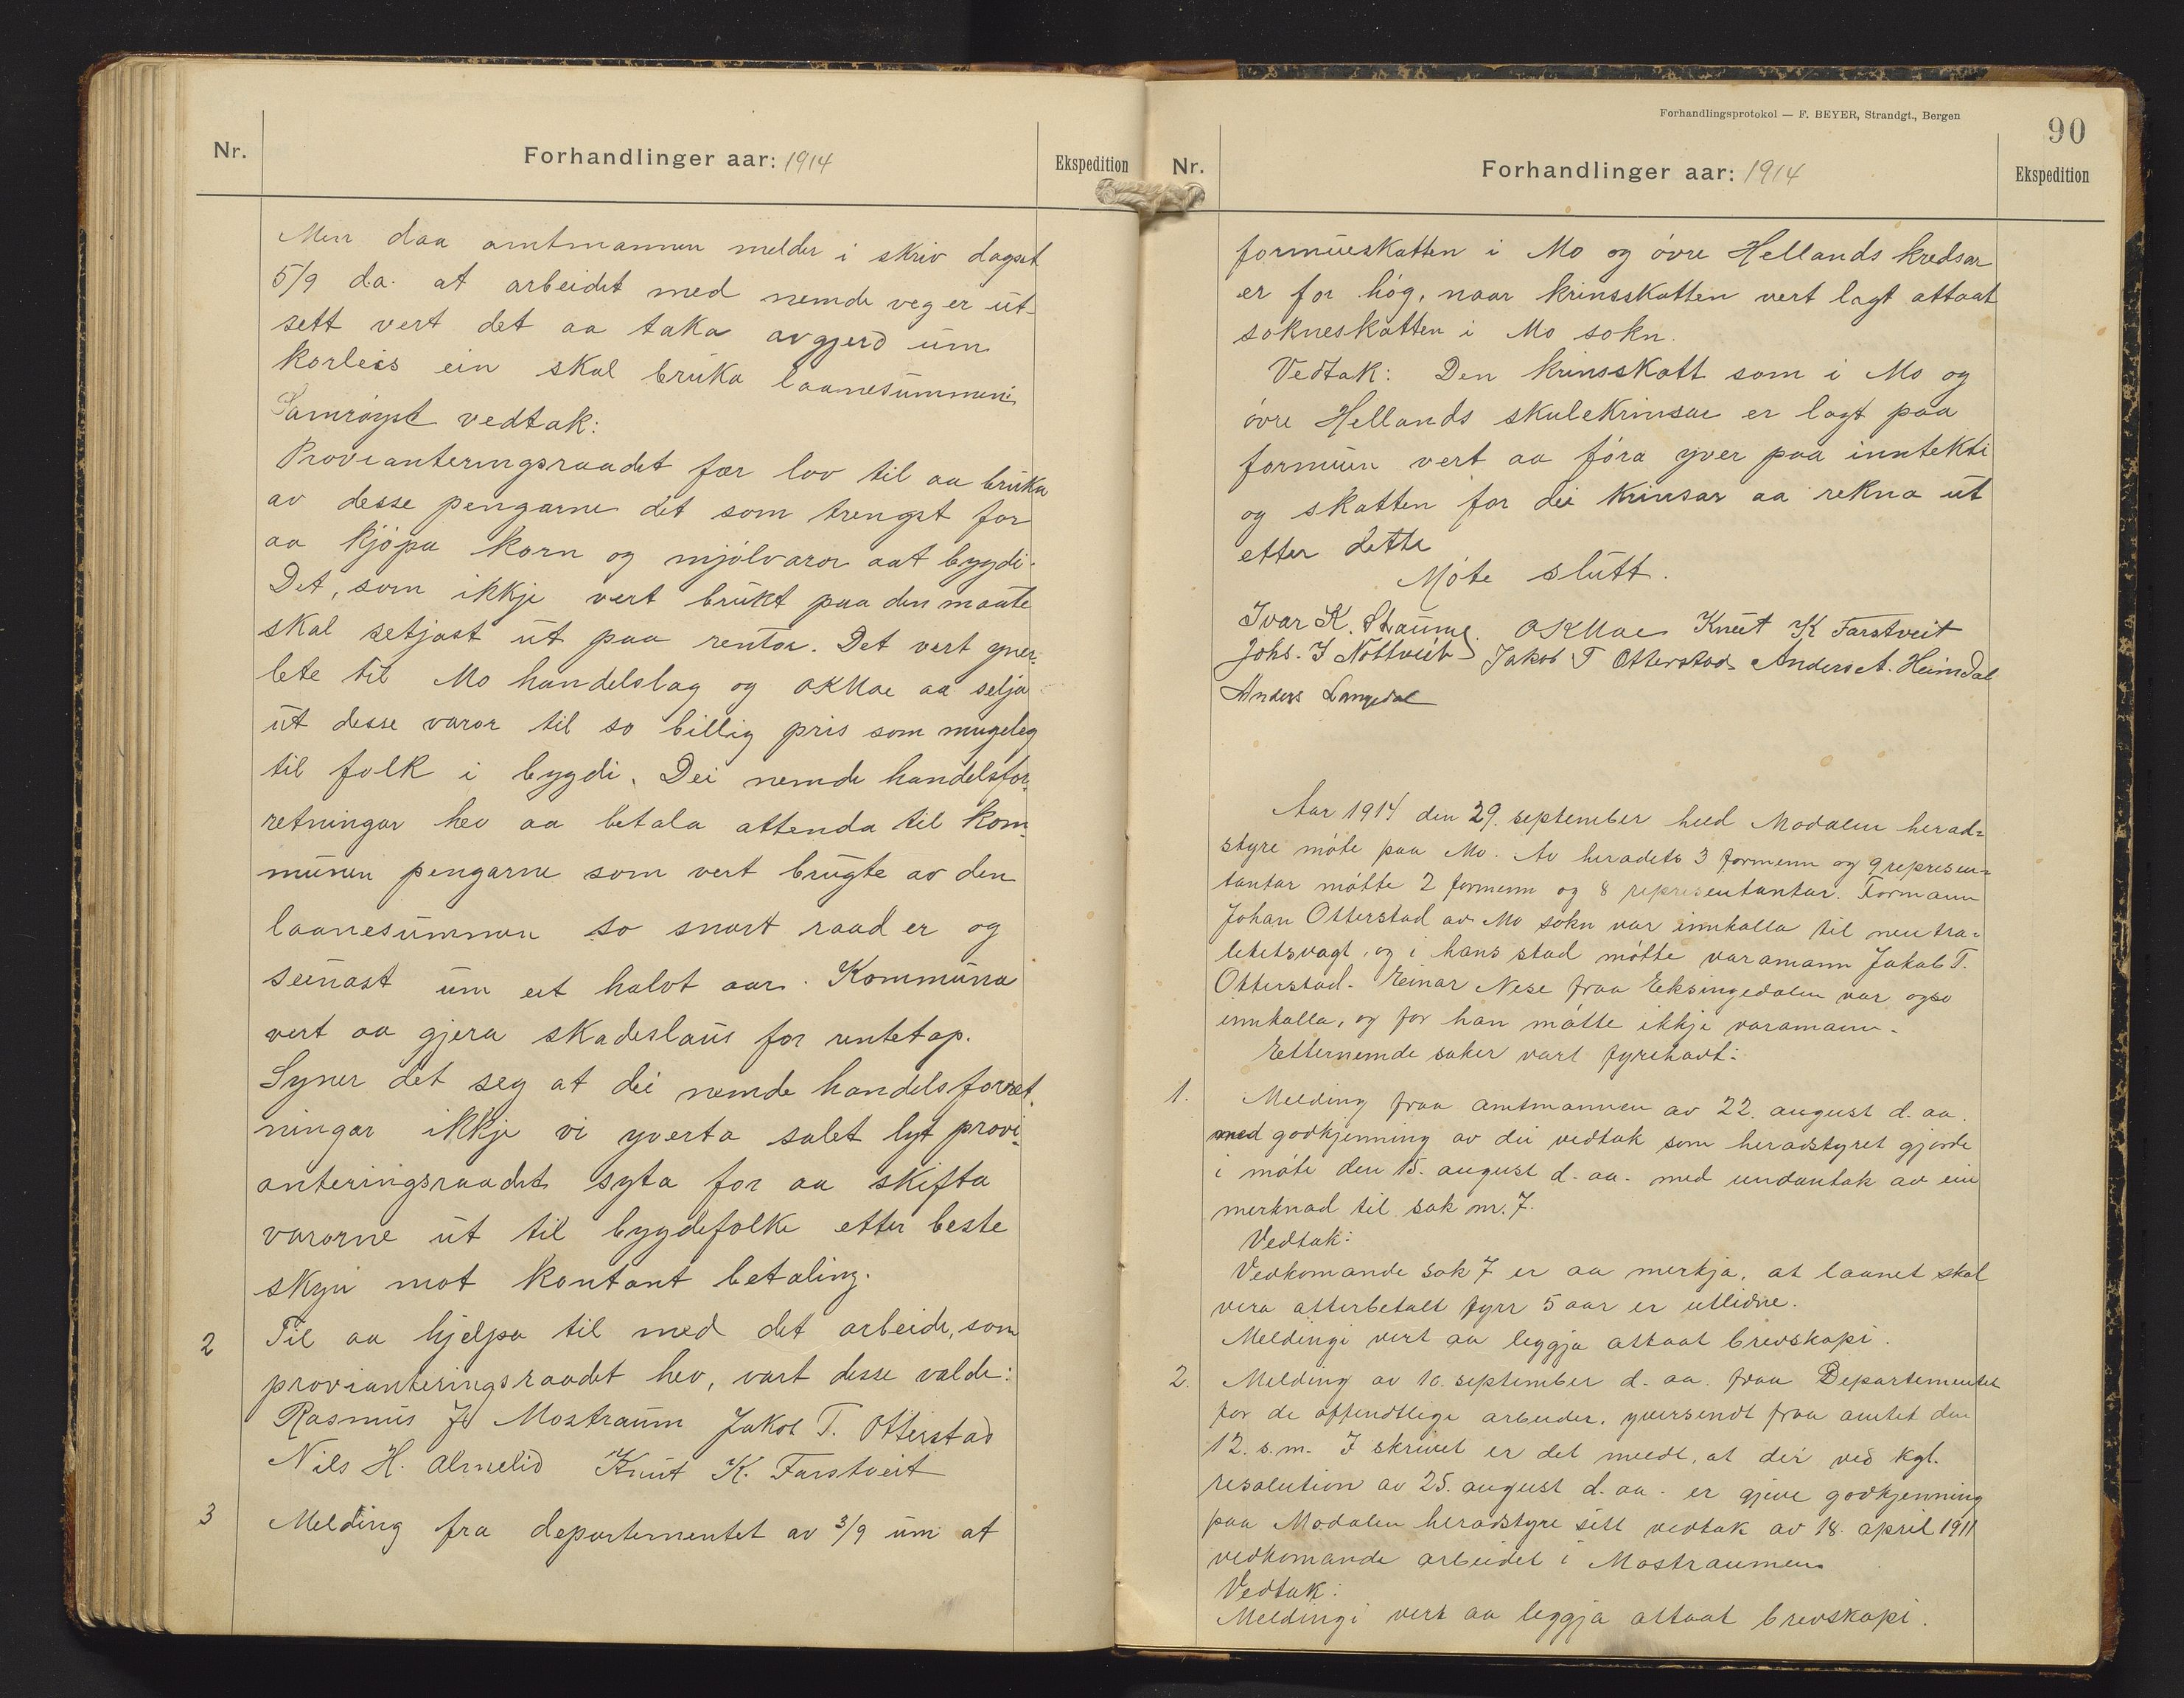 Nr.
Forhandlinger aar: 1914
Ekspedition
Men daa amtmannen melder i skriv dagset
5/9 d.a. at arbeidet med nemde veg er ut-
sett vert det aa taka avgjerd um
korleis ein skal bruka laanesummen.
Samrøyst vedtak:
Provianteringsraadet fær lov til aa bruka
av desse pengarne det som trengst for
aa kjøpa korn og mjølvaror aat bygdi.
Det, som ikkje vert brukt paa den maate
skal setjast ut paa rentor. Det vert yver-
lete til Mo handelslag og OKMoe aa selja
ut desse varor til so billig pris som mugeleg
til folk i bygdi. Dei nemde handelsfor-
retningar hev aa betala attenda til kom-
munen pengarne som vert brugte av den
laanesummen so snart raad er og
seinast um eit halvt aar. Kommuna
vert aa gjera skadeslaus for rentetap.
Syner det seg at dei nemde handelsforret-
ningar ikkje vi yverta salet lyt provi-
anteringsraadet syta for aa skifta
vararne ut til bygdefolke etter beste
skyn mot kontant betaling.
2 Til aa hjelpa til med det arbeide, som
provianteringsraadet hev, vart desse valde:
Rasmus J Mostraum Jakob T. Otterstad
Nils H. Almelid Knut K. Farstveit
3 Melding fra departementet av 3/9 um at
Forhandlingsprotokol — F. BEYER, Strandgt., Bergen
90
Nr.
Forhandlinger aar: 1914
Ekspedition
formueskatten i Mo og øvre Hellands kredsar
er for høg, naar krinsskatten vert lagt attaat
sokneskatten i Mo sokn.
Vedtak: Den krinsskatt som i Mo og
øvre Hellands skulekrinsar er lagt paa
formuen vert aa føra yver paa inntekti
og skatten for dei krinsar aa rekna ut
etter dette
Møte slutt.
Ivar K. Straume. OKMoe Knut K Farstveit
Johs. I Nottveit Jakob T Otterstad Anders A. Heimdal
Anders Langedal
Aar 1914 den 29. september heed Modalen herad=
styre møte paa Mo. Av heradets 3 formenn og 9 represen=
tantar møtte 2 formenn og 8 representantar. Formann
Johan Otterstad av Mo sokn var innkalla til neutra=
litetsvagt, og i hans stad møtte varamann Jakob T.
Otterstad. Einar Nese fraa Eksingedalen var ogso
innkalla, og for han møtte ikkje varamann.
Etternemde saker vart fyrehavt:
1. Melding fraa amtmannen av 22. august d. aa.
med godkjenning av dei vedtak som heradstyret gjorde
i møte den 15. august d. aa. med undantak av ein
merknad til sak nr. 7.
Vedtak:
Vedkomande sak 7 er aa merkja, at laanet skal
vera atterbetalt fyrr 5 aar er utlidne.
Meldingi vert aa leggja attaat brevskapi.
2. Melding av 10. september d. aa. fraa Departementet
for de offendtlige arbeider, yversendt fraa amtet den
12. s. m. I skrivet er det meldt, at dei ved kgl.
resolution av 25. august d. aa. er gjeve godkjenning
paa Modalen heradstyre sitt vedtak av 18. april 1911
vedkomande arbeidet i Mostraumen.
Vedtak:
Meldingi vert aa leggja attaat brevskapi.